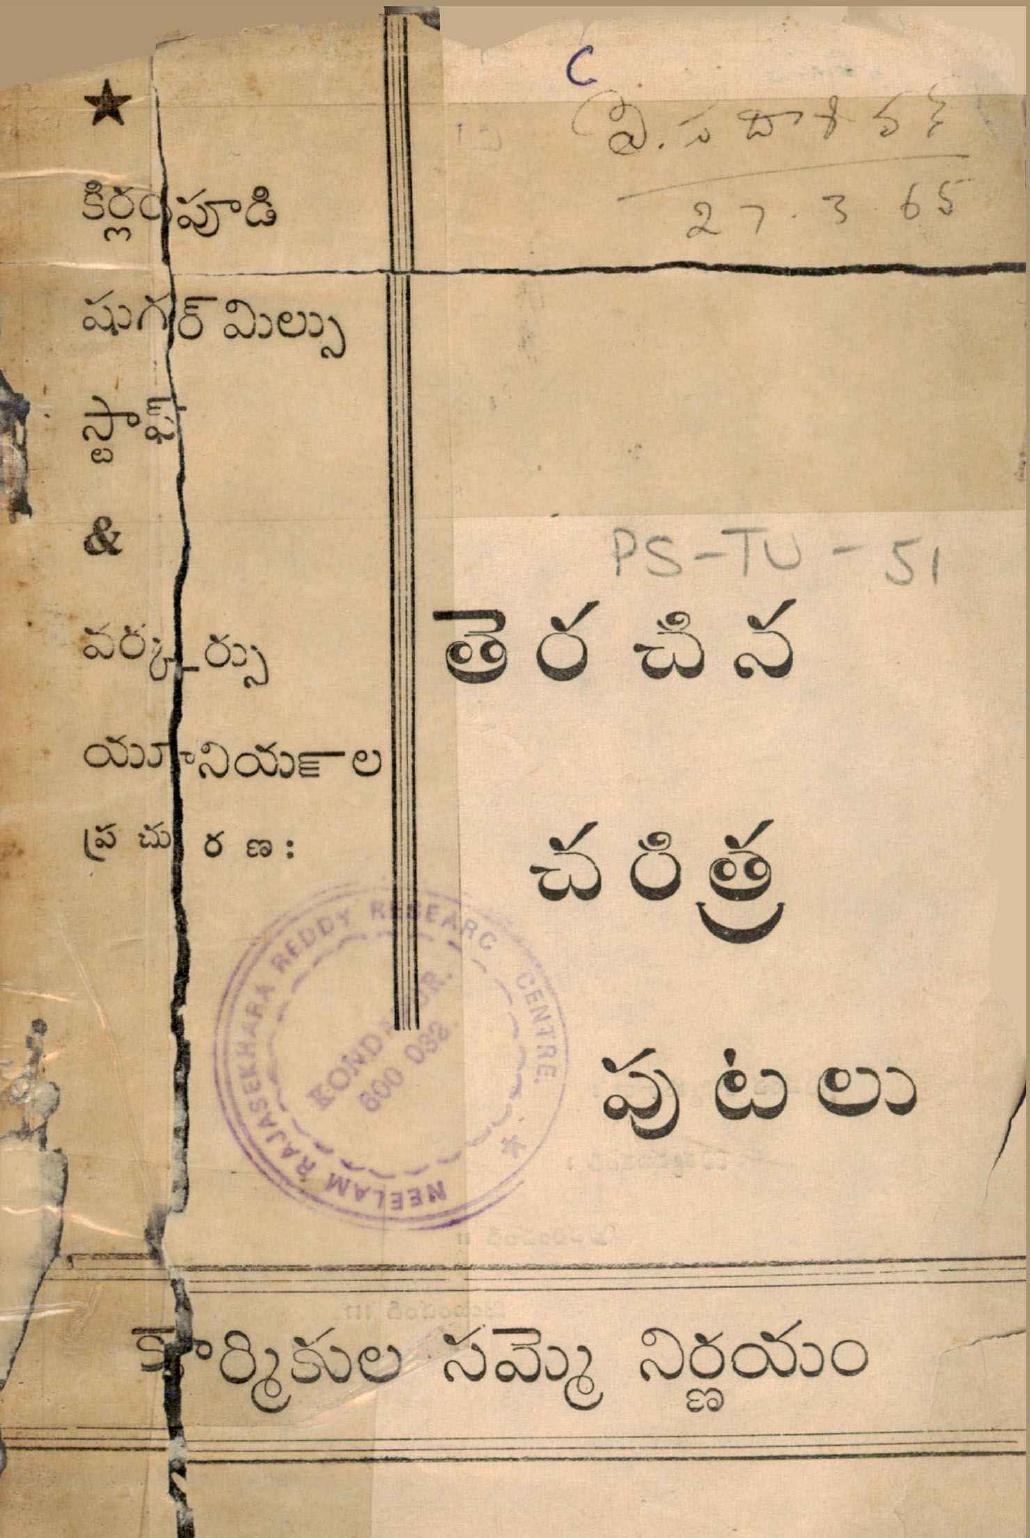 C
వి. సదాశివన్
27.3.65
★
కిర్లంపూడి
షుగర్ మిల్సు
స్టాఫ్
&
వర్కర్సు
యూనియన్ ల
ప్రచురణ:
PS-TU-51
తెరచిన
చరిత్ర
పుటలు
NEELAM RAJASEKHARA REDDY RESEARC CENTRE.
500 032
కార్మికుల సమ్మె నిర్ణయం